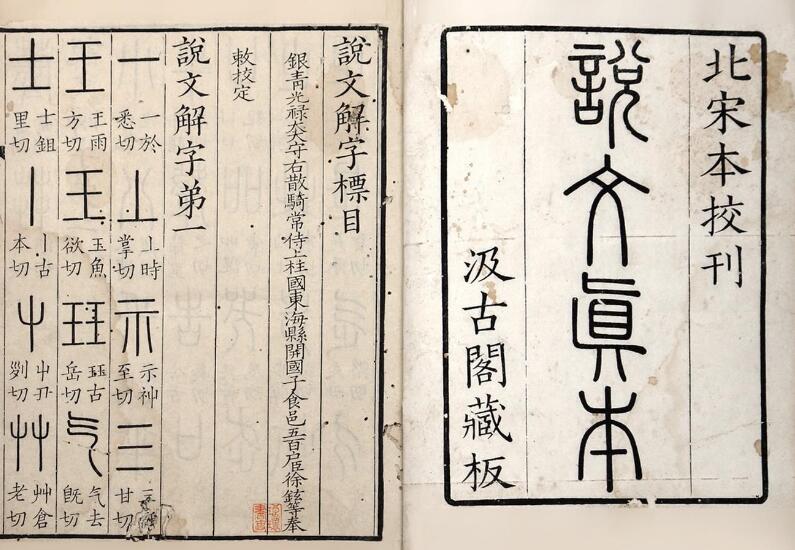 北宋本挍刊
說文眞本
汲古閣藏板
說文解字標目
銀青光禄大夫守右散騎常侍上柱國東海縣開國子食邑五百户臣徐鉉等奉
敕挍定
說文解字第一
一 一於悉切 丄 丄時掌切 示 示神至切 三 三 甘切
王 王雨方切 王 玉魚欲切 玨 玨古岳切 气 气去旣切
士 士鉏里切 丨 丨古本切 屮 屮丑 切 艸 艸倉老切